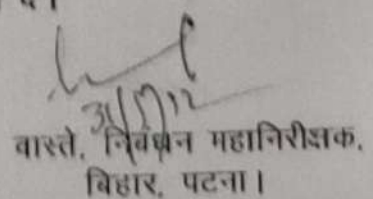 वास्ते, निबंधन महानिरीक्षक,
बिहार, पटना।